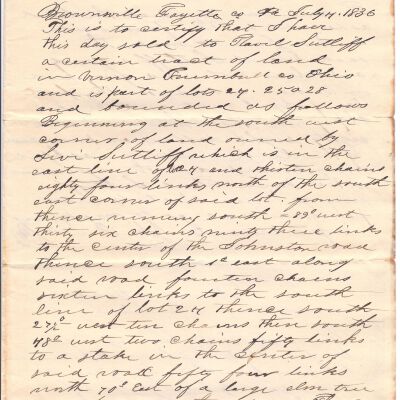 Brownville Fayette co Pa July 4. 1836
This is to certify that I have
this day sold to Flavel Sutliff
a certain tract of land
in Vernon Trumbull co Ohio
and is part of lots 24. 25 & 28
and bounded as follows
Beginning at the south west
corner of land owned by
Levi Sutliff which is in the
east line of and thirteen chains
eighty four links north of the south
east corner of said lot. from
thence running south 89° west
thirty six chains ninty three links
to the center of the Johnston road
thence south 1° east along
said road fourteen chains
sixteen links to the south
line of lot 24 thence south
27½° west ten chains then south
48° west two chains fifty links
to a stake in the center of
said road fifty four links
north 70° east of a large elm tree